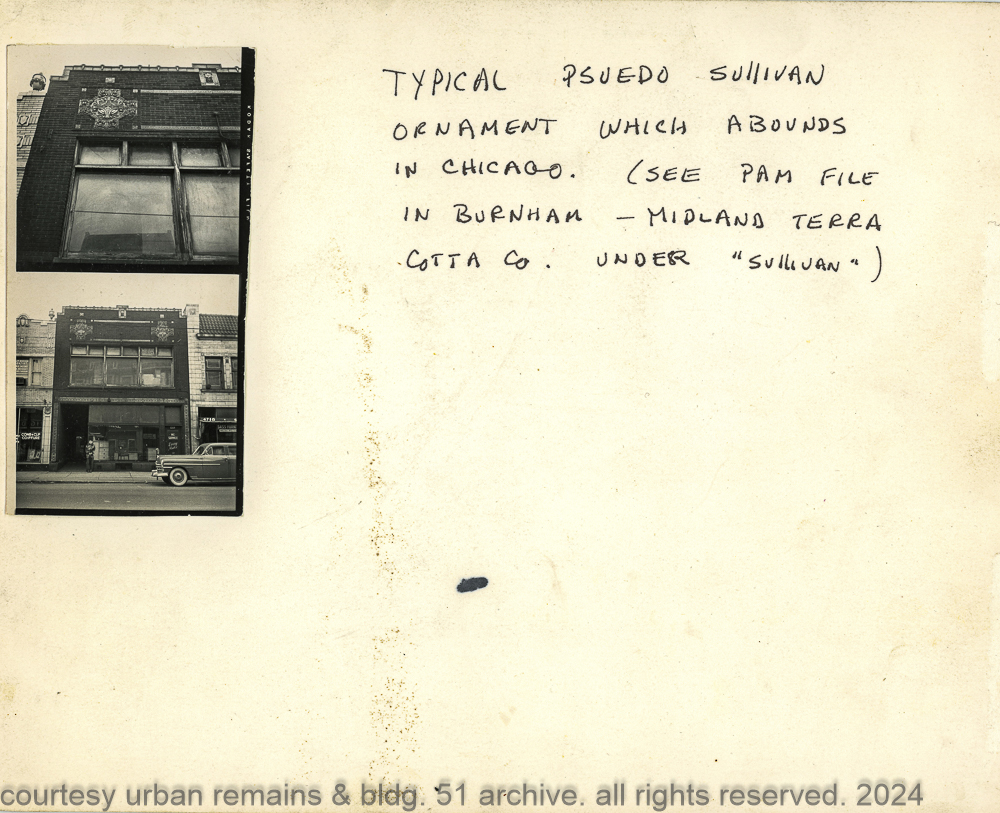 TYPICAL PSUEDO SULLIVAN
ORNAMENT WHICH ABOUNDS
IN CHICAGO. (SEE PAM FILE
IN BURNHAM – MIDLAND TERRA
COTTA CO. UNDER "SULLIVAN")
courtesy urban remains & bldg. 51 archive. all rights reserved. 2024